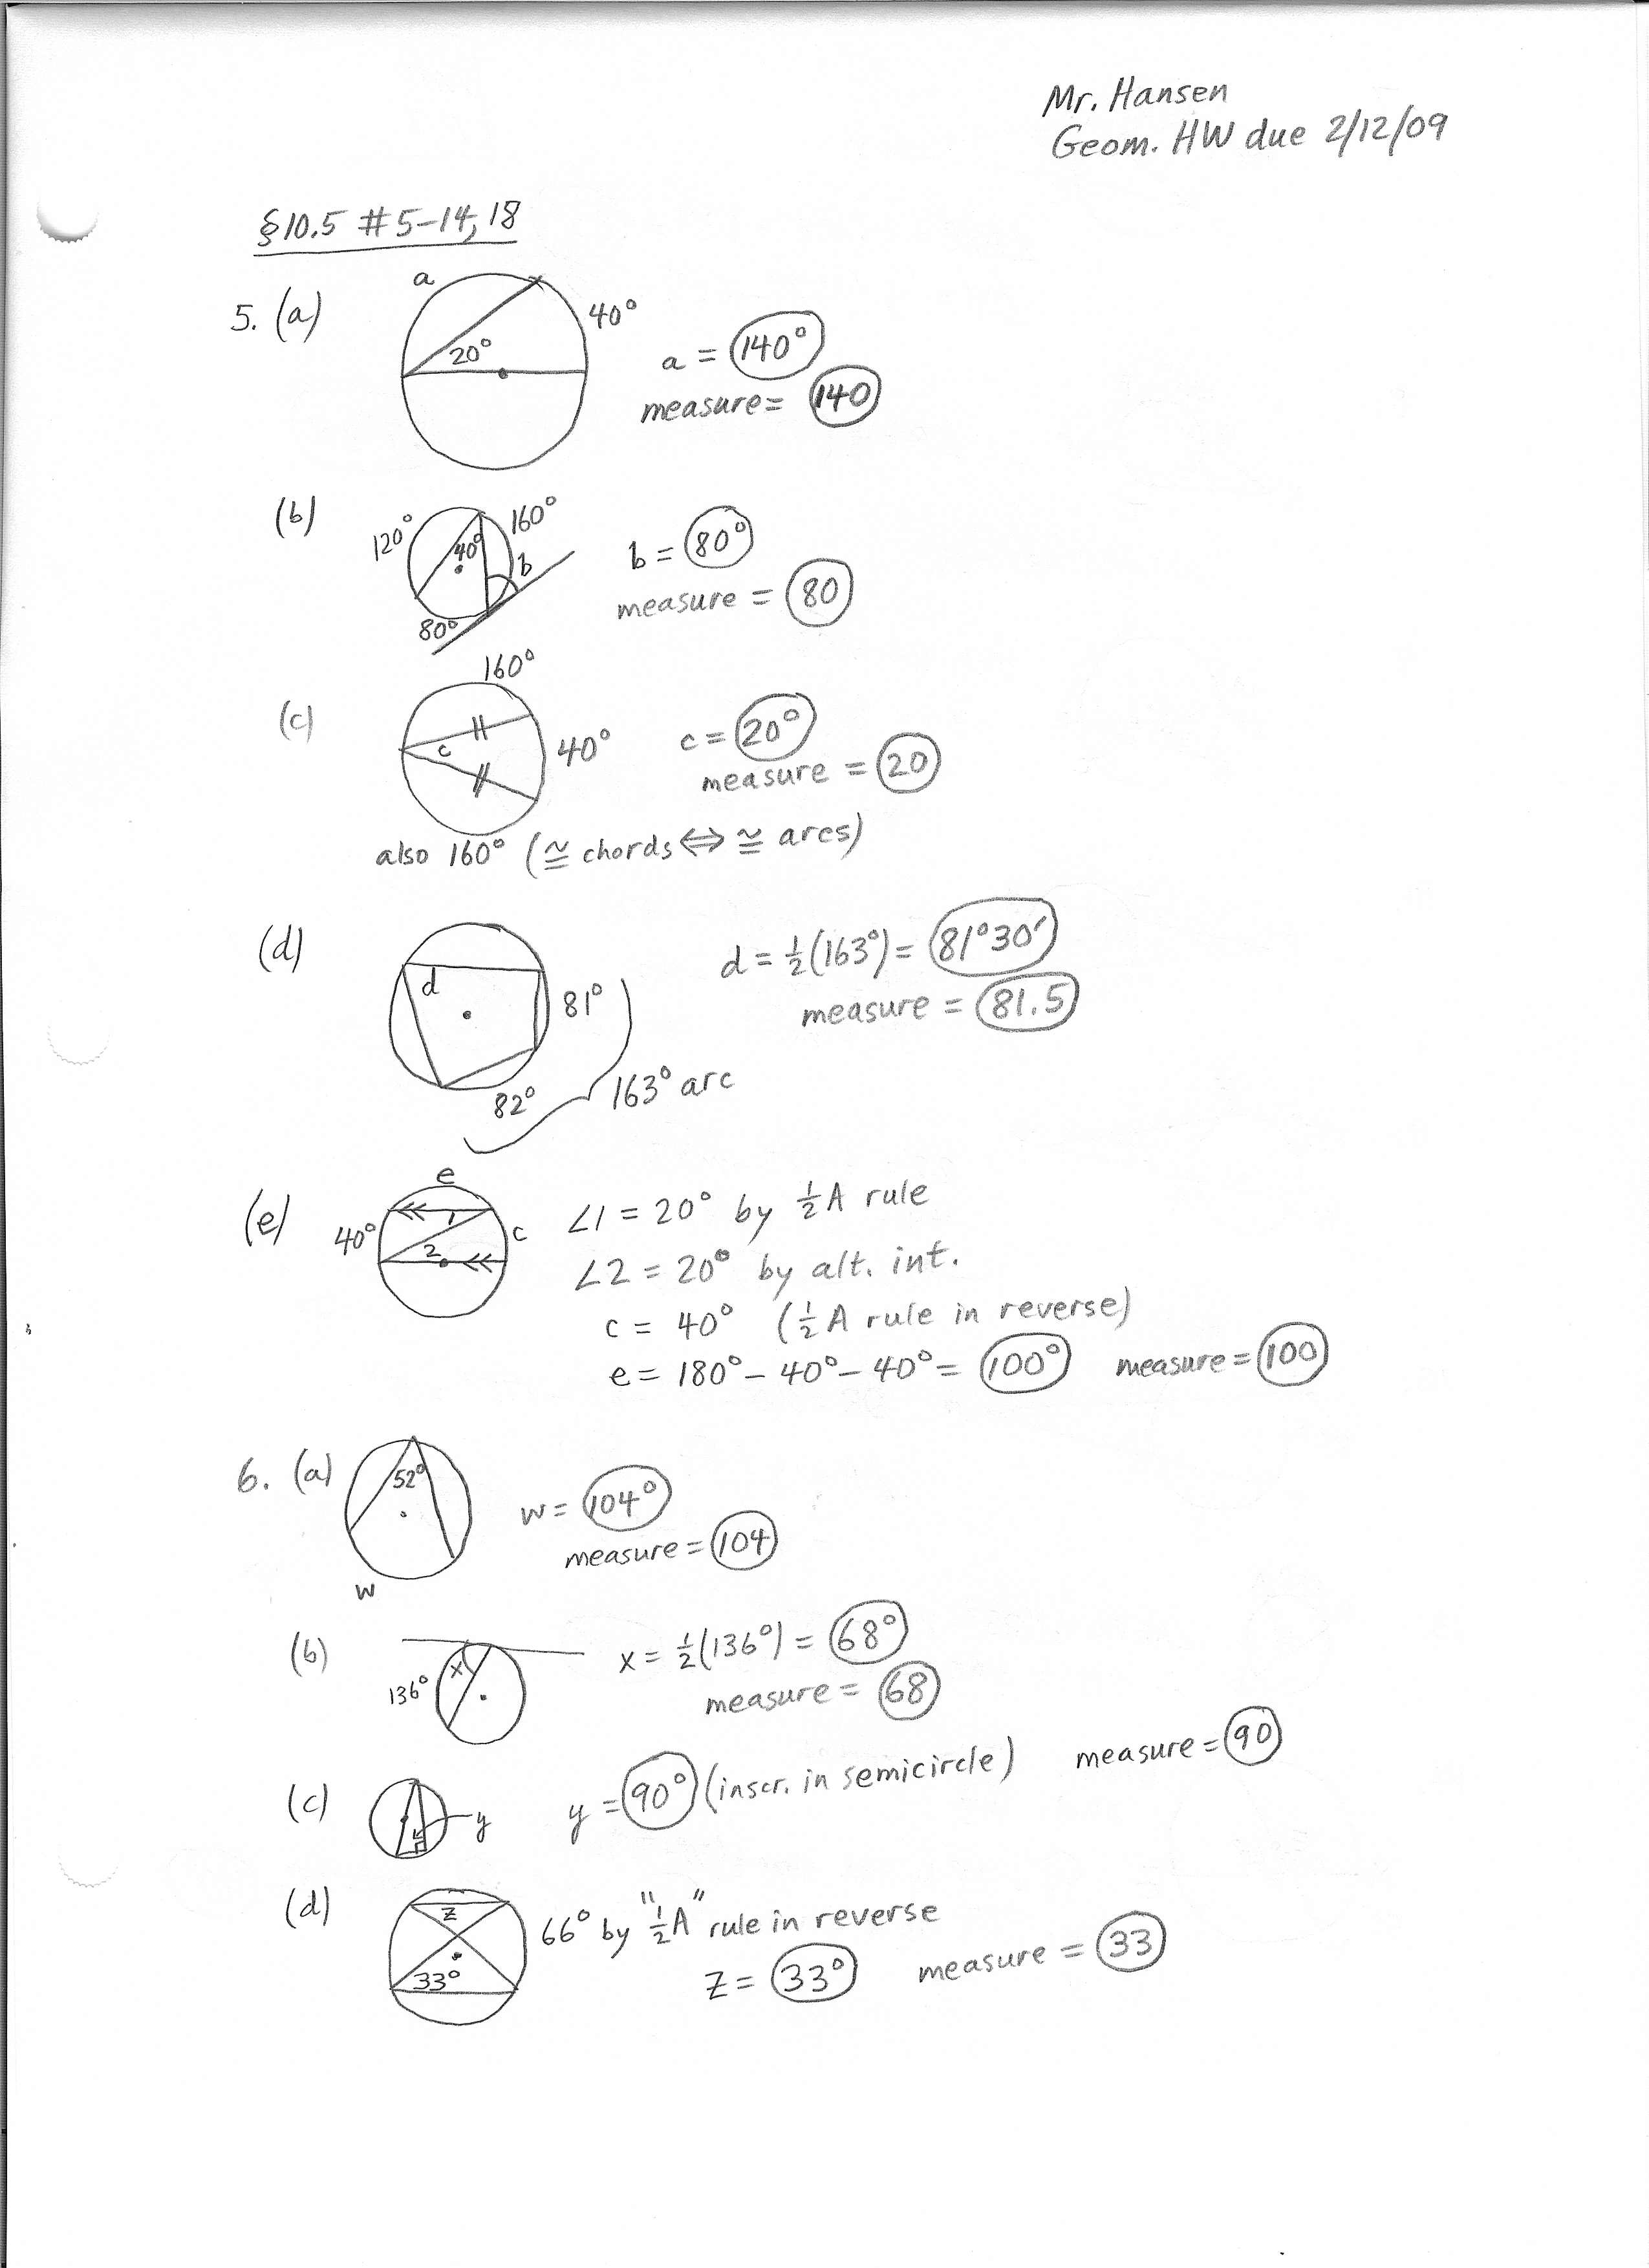 Mr. Hansen
Geom. HW due 2/12/09
§10.5 #5–14, 18
5. (a)
a
40°
20°
a = 140°
measure = 140
(b)
120°
160°
40°
b
80°
b = 80°
measure = 80
(c)
160°
c
40°
c = 20°
measure = 20
also 160° (≅ chords ⇔ ≅ arcs)
(d)
d
81°
82°
163° arc
d = ½(163°) = 81°30′
measure = 81.5
(e)
e
40°
1
2
c
∠1 = 20° by ½A rule
∠2 = 20° by alt. int.
c = 40° (½A rule in reverse)
e = 180° – 40° – 40° = 100° measure = 100
6. (a)
52°
w
w = 104°
measure = 104
(b)
136°
x
x = ½(136°) = 68°
measure = 68
(c)
y
y = 90° (inscr. in semicircle) measure = 90
(d)
z
33°
66° by "½A" rule in reverse
z = 33° measure = 33